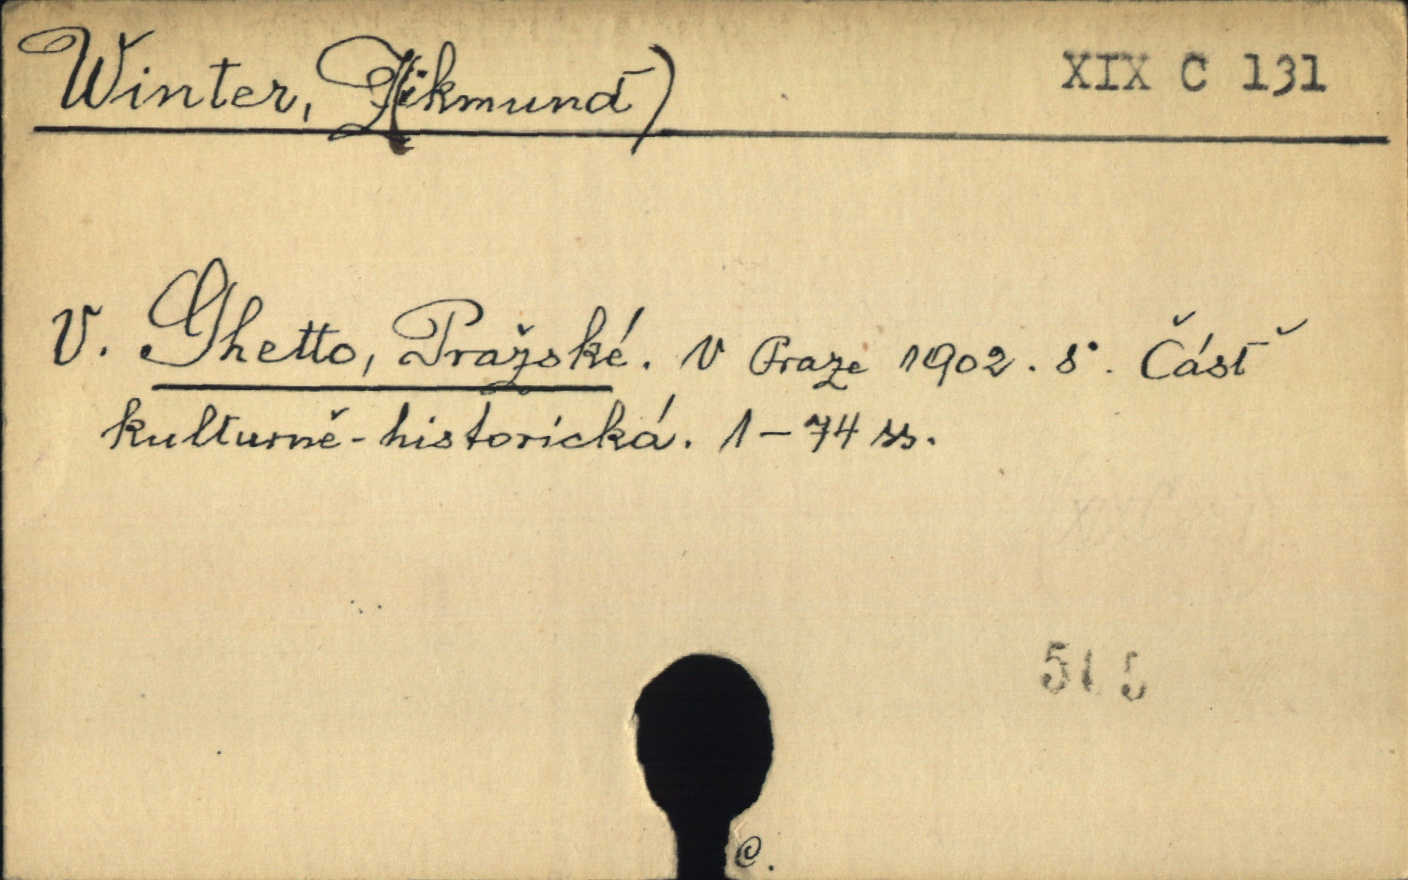 Winter, Zikmund)
XIX C 131
V. Ghetto, Pražské. V Praze 1902. 8°. Část
kulturně-historická. 1-74 ss.
C.